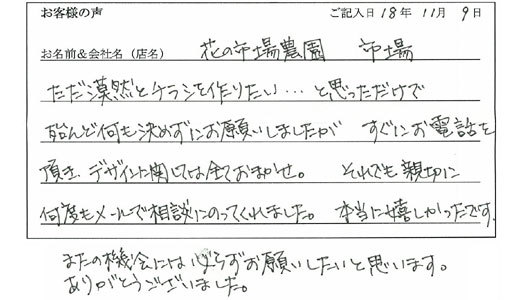 お客様の声 ご記入日 18年 11月 9日
お名前&会社名（店名） 花の市場農園 市場
ただ漠然とチラシを作りたい…と思っただけで
殆んど何も決めずにお願いしましたが すぐにお電話を
頂き、デザインに関しては全ておまかせ。 それでも親切に
何度もメールで相談にのってくれました。 本当に嬉しかったです。
またの機会には必らずお願いしたいと思います。
ありがとうございました。